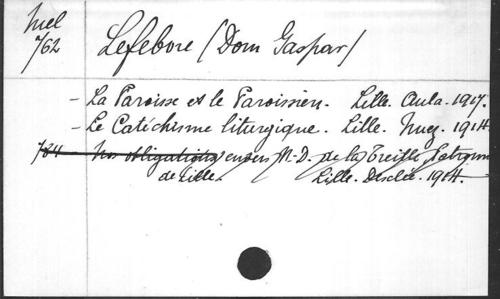 Mel
762
Lefebvre (Dom Gaspar)
- La Paroisse et le Paroissien. Lille. Aula. 1917.
- Le Catéchisme liturgique. Lille. 1914
784 - Nos obligations envers N.-D. de la Treille Patronne
de Lille. Lille. Desclée. 1914.